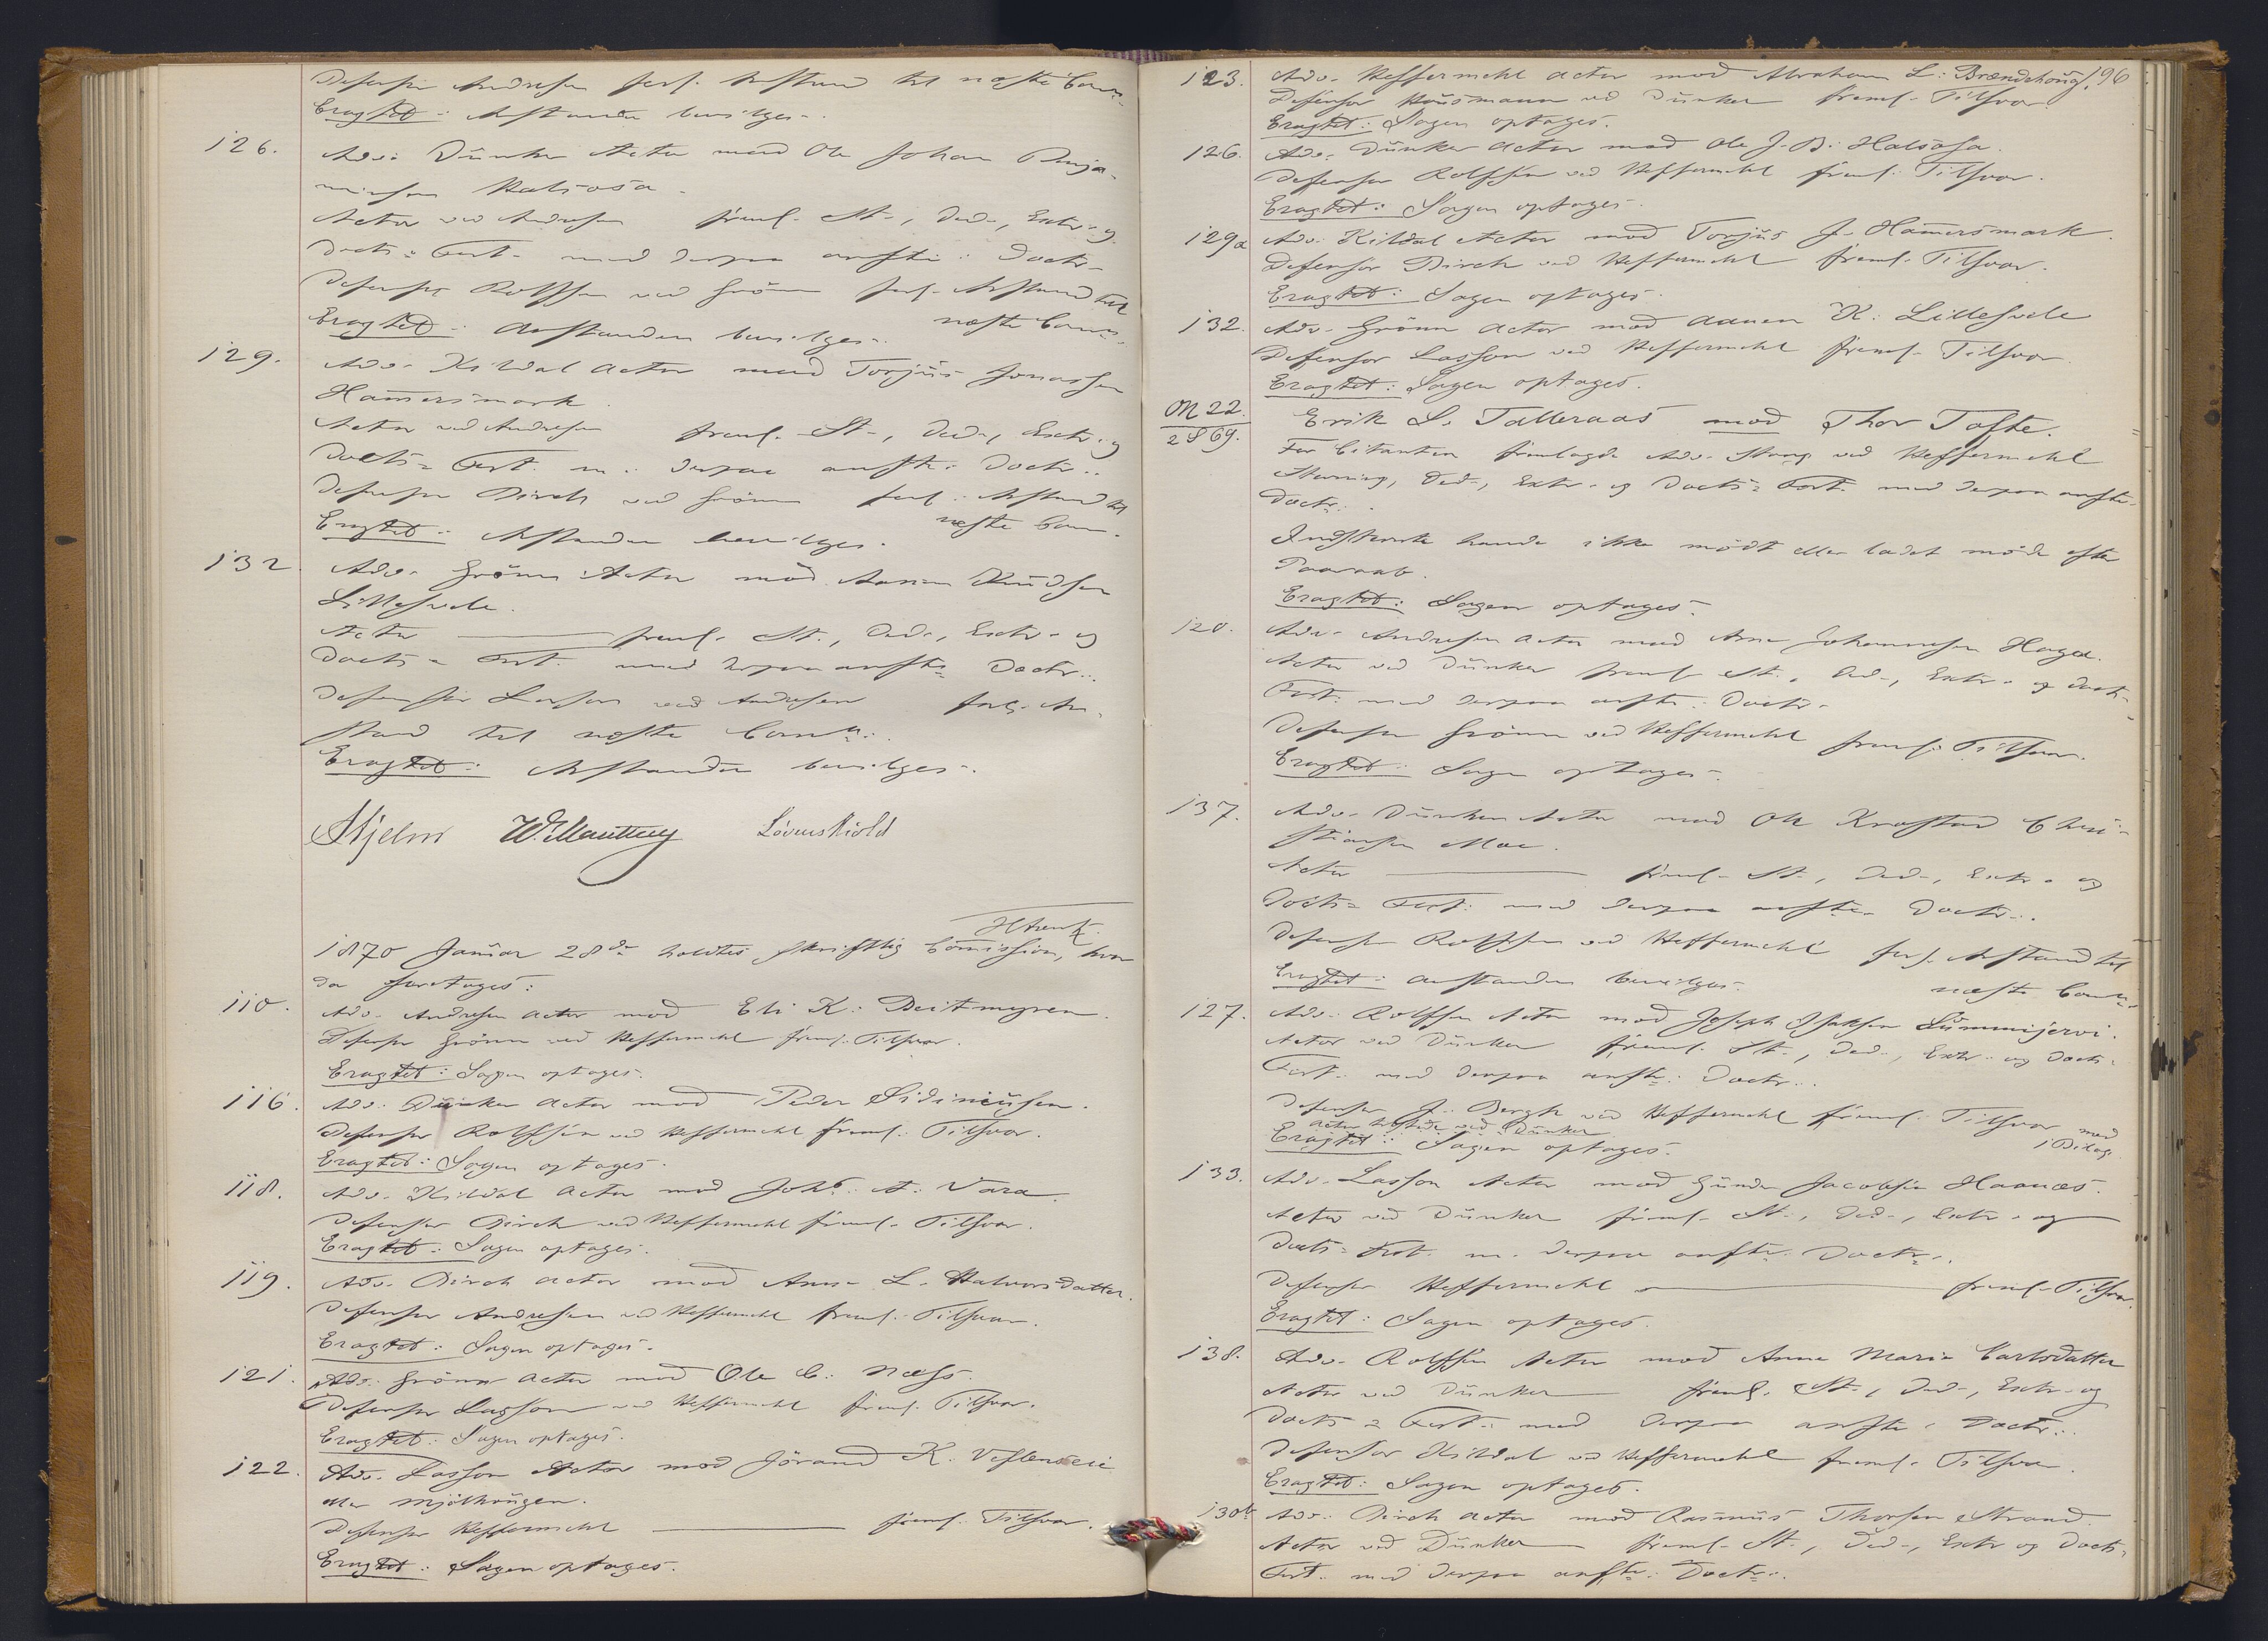 Defensor Andresen forl. Anstand til næste Comn.
Eragtet: Anstanden bevilges.
126. Adv. Dünker Actor mod Ole Johan Benja-
minsen Halsosa.
Actor ved Andresen freml. St., Ded., Extr. og
Docts. Fort. med derpaa anfte. Doctr.
Defensor Rolfsen ved Grönn forl. Anstand til
næste Comn.
Eragtet: Anstanden bevilges.
129. Adv. Kildal Actor mod Torjüs Jonassen
Hammersmark.
Actor ved Andresen freml. St., Ded., Extr. og
Docts. Fort. m. derpaa anfte. Doctr.
Defensor Birch ved Grönn forl. Anstand til
næste Comn.
Eragtet: Anstanden bevilges.
132. Adv. Grönn Actor mod Aanen Knüdsen
Lillesvele.
Actor freml. St., Ded., Extr. og
Docts. Fort. med derpaa anfte. Doctr.
Defensor Lasson ved Andresen forl. An-
stand til næste Comn.
Eragtet: Anstanden bevilges.
Hjelm W. Manthey Lövenskiold
1870 Januar 28de holdtes skriftlig Commission, hvor
da foretages:
110. Adv. Andresen Actor mod Eli K. Beitmyren.
Defensor Grönn ved Heffermehl freml. Tilsvar.
Eragtet: Sagen optages.
116. Adv. Dünker Actor mod Peder Sidiniüsen.
Defensor Rolfsen ved Heffermehl freml. Tilsvar.
Eragtet: Sagen optages.
118. Adv. Kildal Actor mod Johs. A. Vara.
Defensor Birch ved Heffermehl freml. Tilsvar.
Eragtet: Sagen optages.
119. Adv. Birch Actor mod Anne L. Halvorsdatter.
Defensor Andresen ved Heffermehl freml. Tilsvar.
Eragtet: Sagen optages.
121. Adv. Grönn Actor mod Ole C. Næss.
Defensor Lasson ved Heffermehl freml. Tilsvar.
Eragtet: Sagen optages.
122. Adv. Lasson Actor mod Jörand K.
eller Mjölhaügen.
Defensor Heffermehl freml. Tilsvar.
Eragtet: Sagen optages.
196
123. Adv. Heffermehl Actor mod Abraham L. Brændehoüg.
Defensor Hüsmann ved Dünker freml. Tilsvar.
Eragtet: Sagen optages.
126. Adv. Dünker Actor mod Ole J. B. Halsosa.
Defensor Rolfsen ved Heffermehl freml. Tilsvar.
Eragtet: Sagen optages.
129a Adv. Kildal Actor mod Torjüs J. Hammersmark.
Defensor Birch ved Heffermehl freml. Tilsvar.
Eragtet: Sagen optages.
132. Adv. Grönn Actor mod Aanen K. Lillesvele
Defensor Lasson ved Heffermehl freml. Tilsvar.
Eragtet: Sagen optages.
22
2 S 69. Erik L. Talleraas mod Thor Tofte.
For Citanten fremlagde Adv. Stang ved Heffermehl
Stevning, Ded., Extr. og Docts. Fort. med derpaa anfte.
Doctr.
Indstevnte havde ikke mödt eller ladet möde efter
Paaraab.
Eragtet: Sagen optages.
120. Adv. Andresen Actor mod Arne Johannesen Hagen.
Actor ved Dünker freml. St., Ded., Extr. og Docts.
Fort. med derpaa anfte. Doctr.
Defensor Grönn ved Heffermehl freml. Tilsvar.
Eragtet: Sagen optages.
137. Adv. Dünker Actor mod Ole Krostad Chri-
stiansen Moe.
Actor freml. St., Ded., Extr. og
Docts. Fort. med derpaa anfte. Doctr.
Defensor Rolfsen ved Heffermehl forl. Anstand til
næste Comn.
Eragtet: Anstanden bevilges.
127. Adv. Rolfsen Actor mod Joseph Isaksen Sümmijervi.
Actor ved Dünker freml. St., Ded., Extr. og Docts.
Fort. med derpaa anfte. Doctr.
Defensor J. Bergh ved Heffermehl freml. Tilsvar med
1 Bilag.
Actor ved Dünker
Eragtet: Sagen optages.
133. Adv. Lasson Actor mod Günder Jacobsen Haanæs.
Actor ved Dünker freml. St., Ded., Extr. og
Docts. Fort. m. derpaa anfte. Doctr.
Defensor Heffermehl freml. Tilsvar.
Eragtet: Sagen optages.
138. Adv. Rolfsen Actor mod Anne Marie Carlsdatter
Actor ved Dünker freml. St., Ded., Extr. og
Docts. Fort. med derpaa anfte. Doctr.
Defensor Kildal ved Heffermehl freml. Tilsvar.
Eragtet: Sagen optages.
130b Adv. Birch Actor mod Rasmüs Thorsen Strand.
Actor ved Dünker freml. St., Ded., Extr. og Docts.
Fort. med derpaa anfte. Doctr.